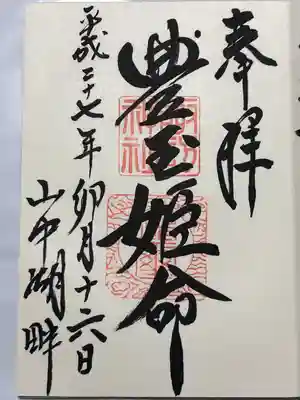 奉拜
豊玉姫命
平成二十七年卯月十六日
山中湖畔